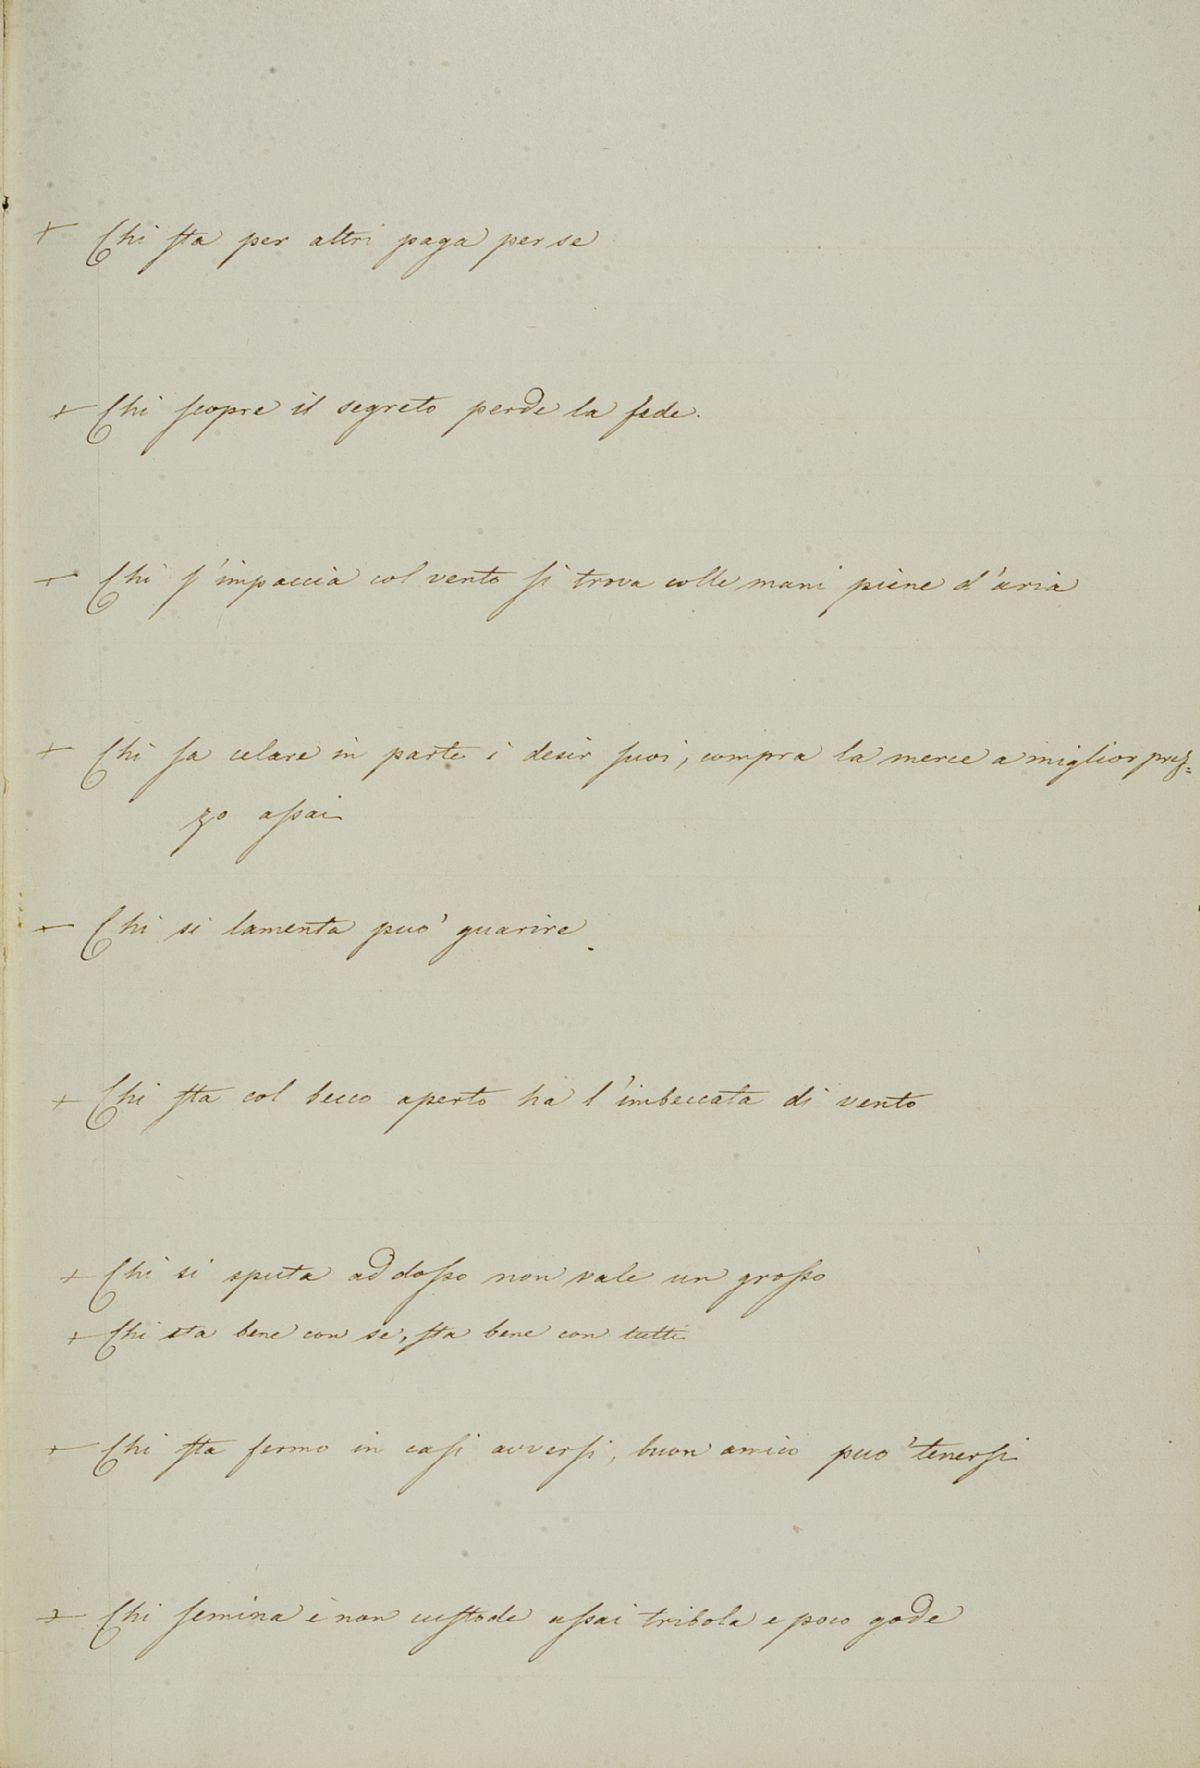 + Chi sta per altri paga per se
+ Chi scopre il segreto perde la fede.
+ Chi s'impaccia col vento si trova colle mani piene d'aria
+ Chi sa celare in parte i desir suoi, compra la merce a miglior prez=
zo assai
+ Chi si lamenta può guarire.
+ Chi sta col becco aperto ha l'imbeccata di vento
+ Chi si sputa addosso non vale un grosso
+ Chi sta bene con se, sta bene con tutti
+ Chi sta fermo in casi avversi, buon amico può tenersi
+ Chi semina e non custode assai tribola e poco gode